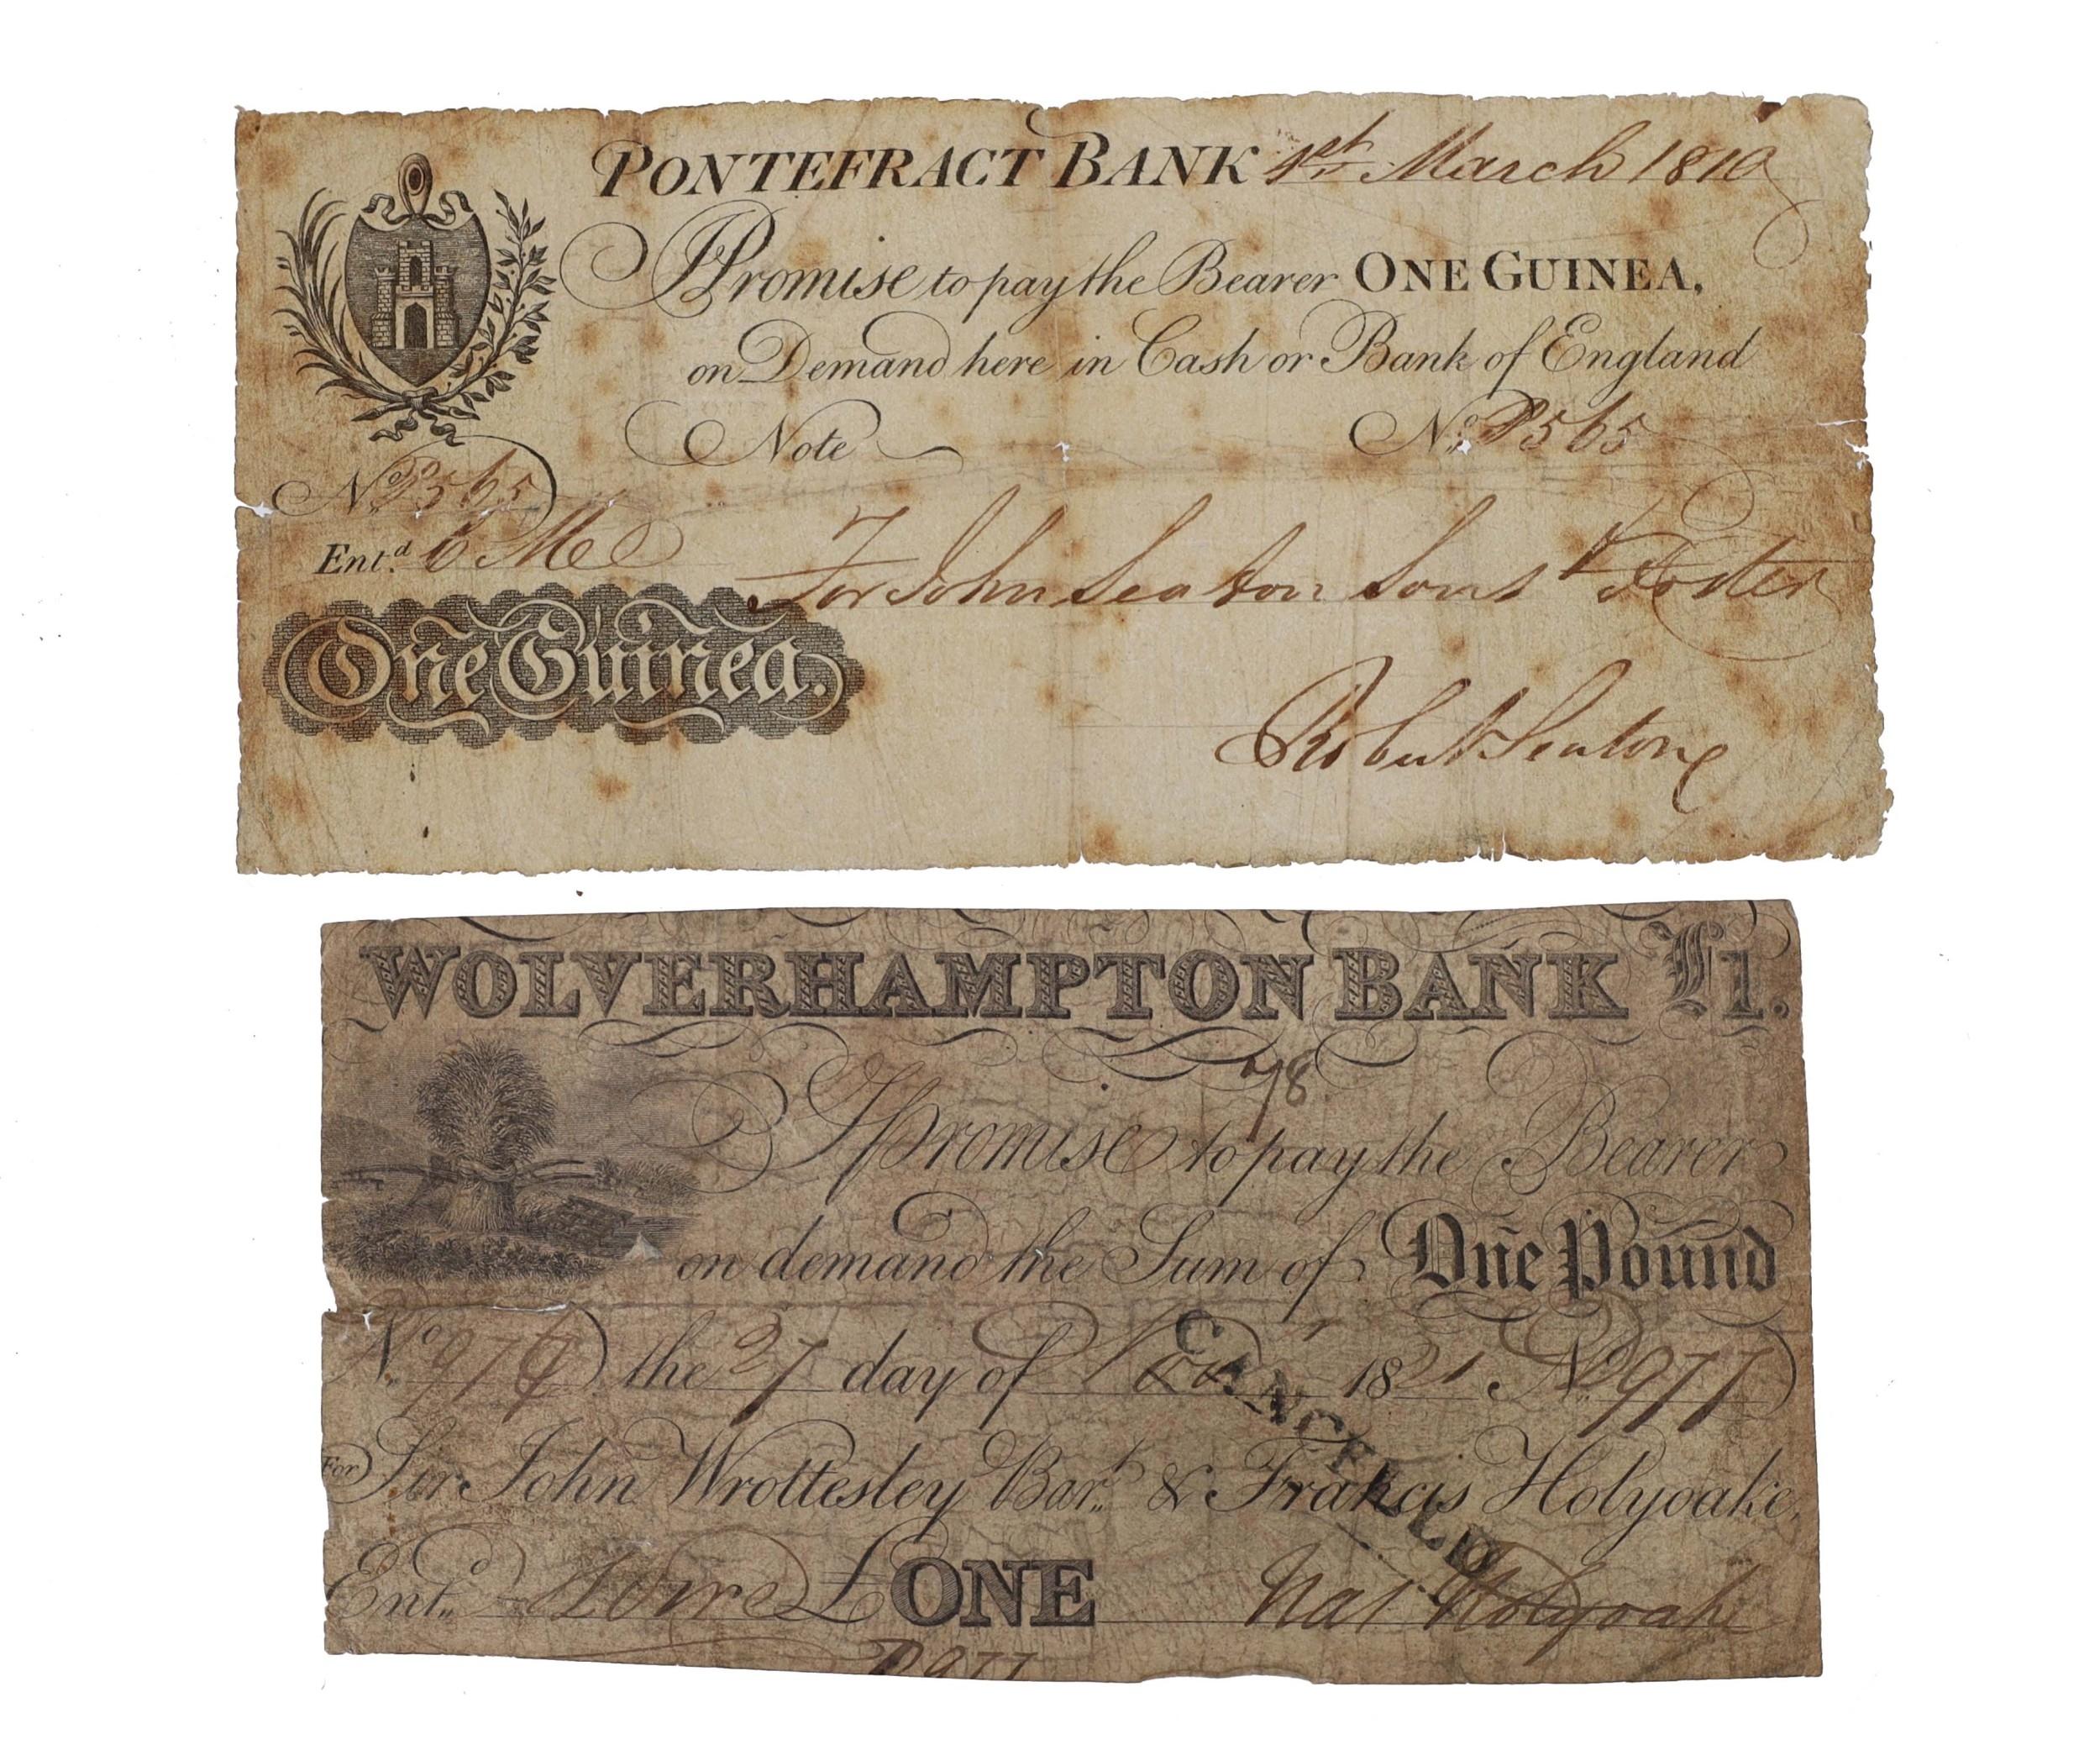 PONTEFRACT BANK 1st March 1810
I Promise to pay the Bearer ONE GUINEA,
on Demand here in Cash or Bank of England
Note No. P565
No. P565
Entd.
For John Seaton Sons & Foster
One Guinea.
Robert Seaton
WOLVERHAMPTON BANK £1.
78
I Promise to pay the Bearer
on demand the Sum of One Pound
No. 977 the 27 day of 1821 No. 977
CANCELLED
For Sir John Wrottesley Bart. & Francis Holyoake,
Ent. £ONE Nat Holyoake
P977